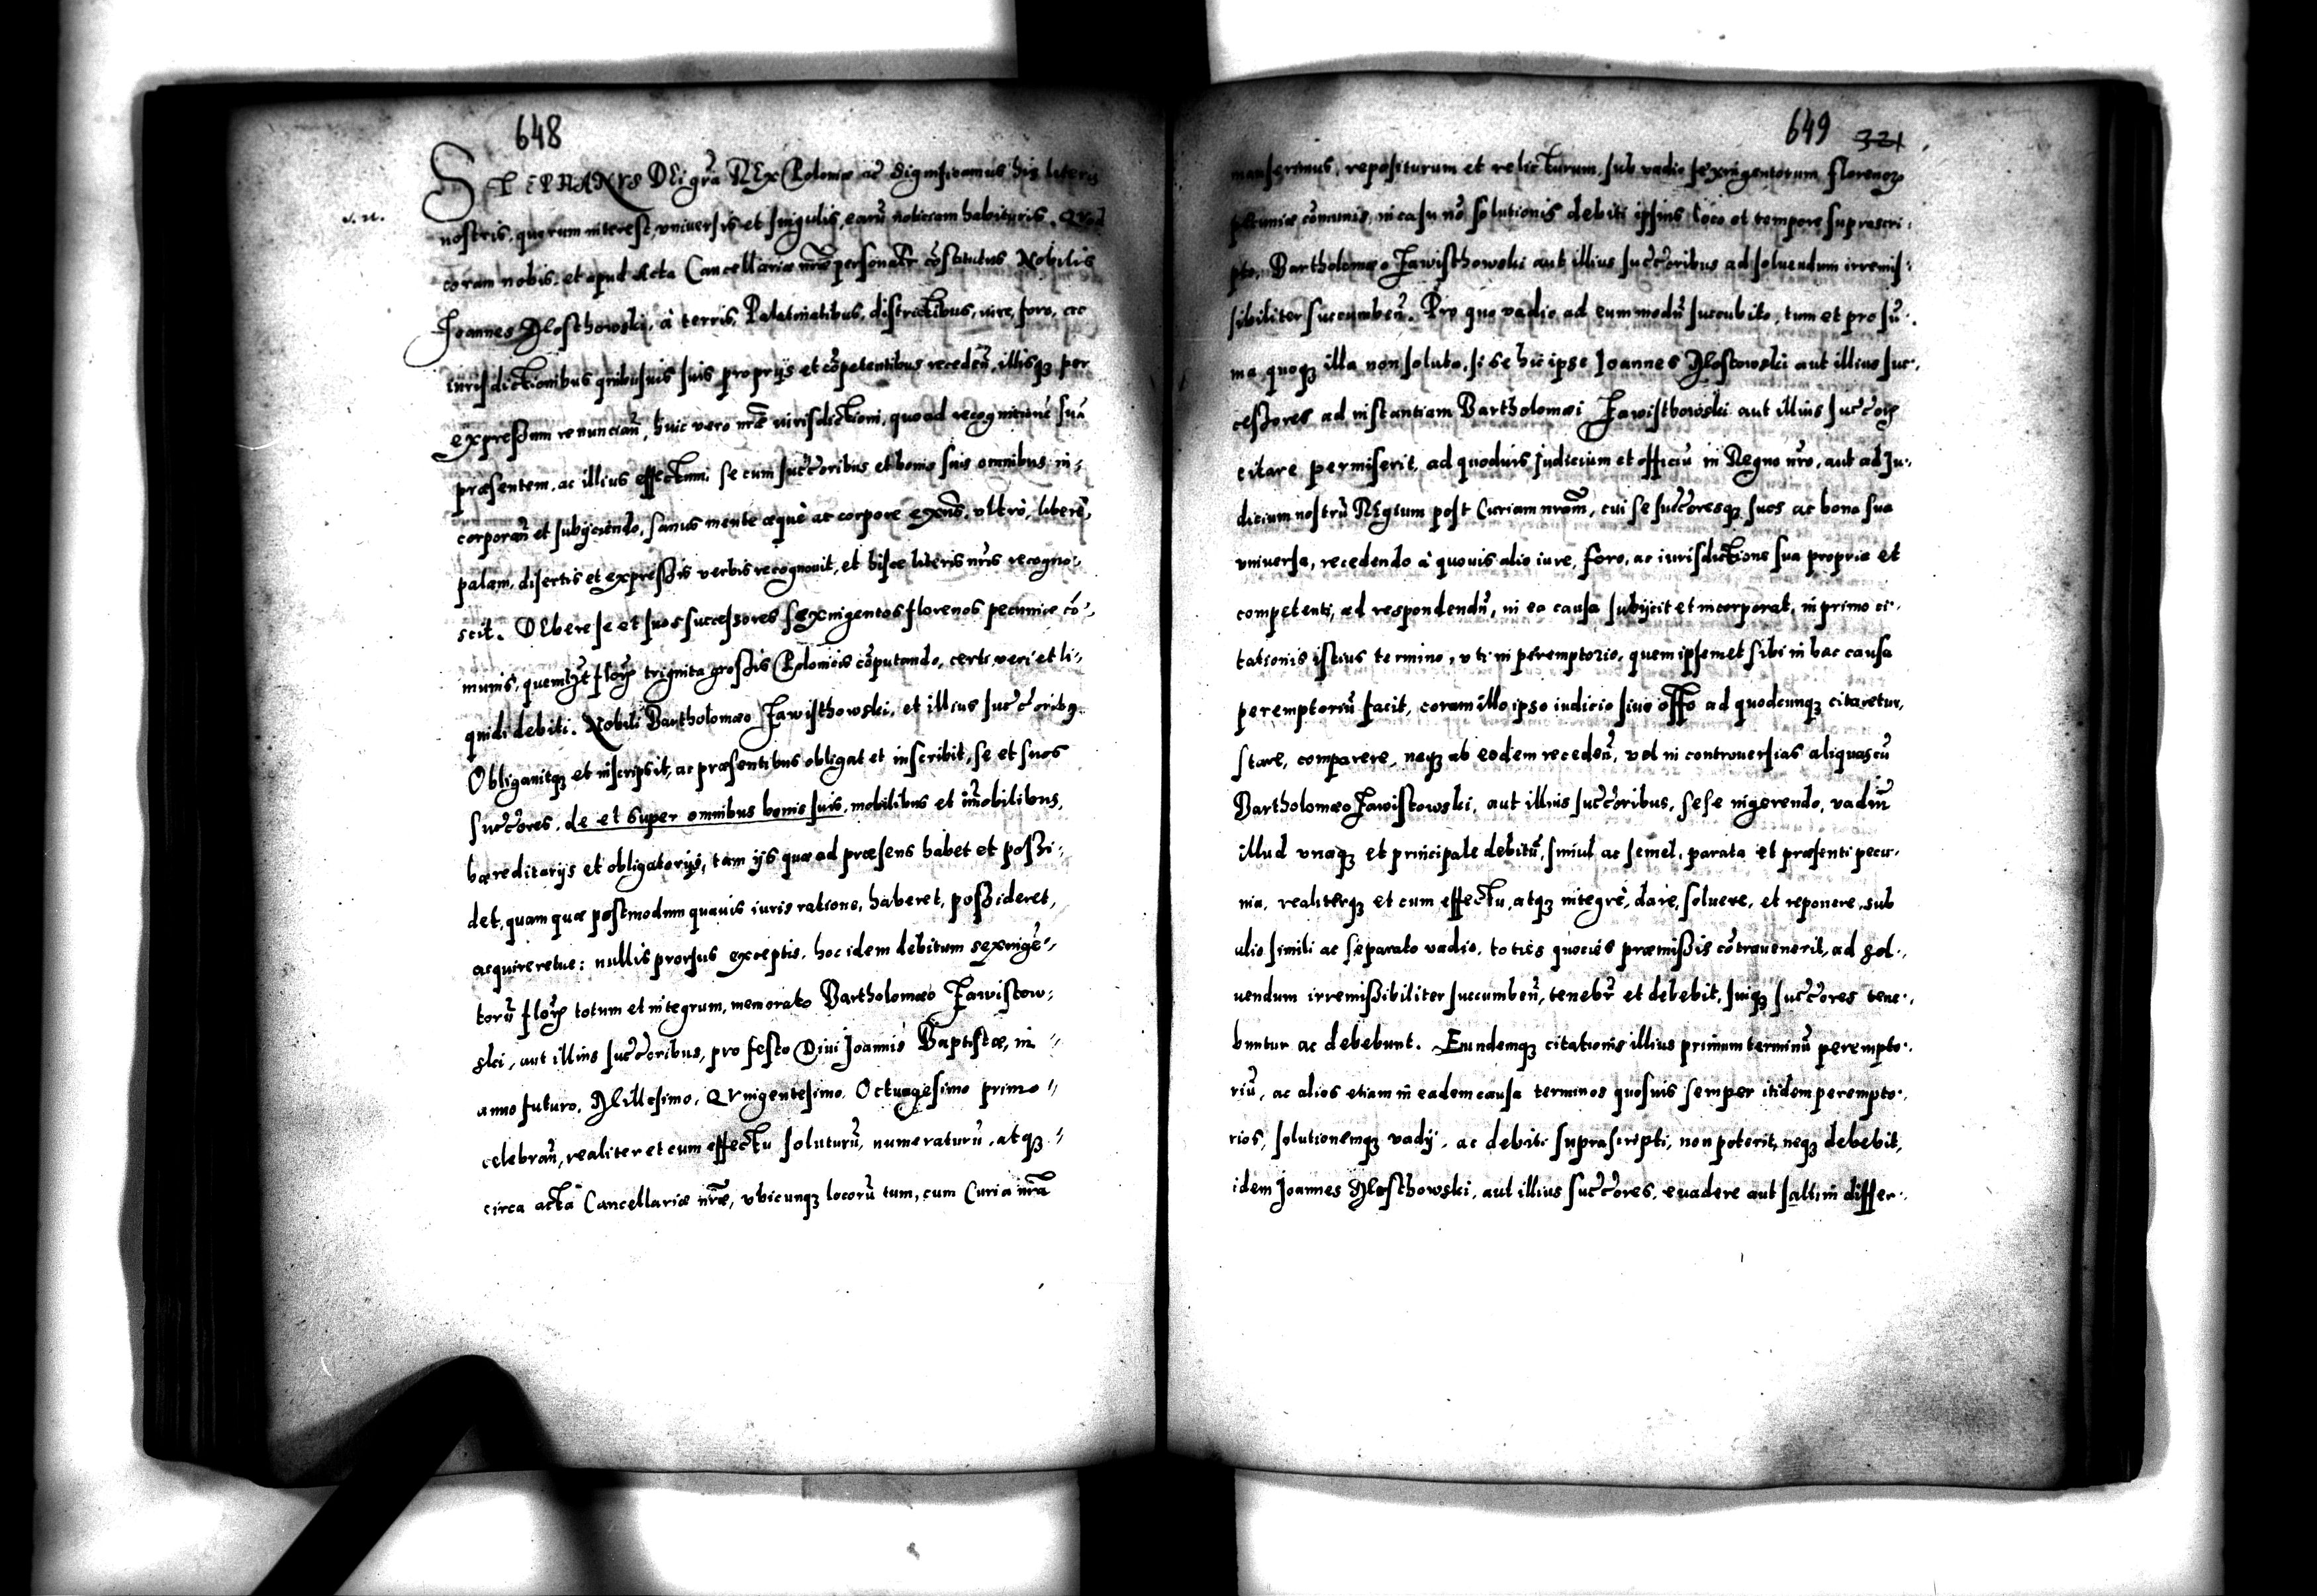 648
STEPHANVS DEi grã REx Poloniæ ac Significamus his literis
nostris, quorum interest, vniuersis et singulis, earũ noticiam habituris. QVod
coram nobis, et apud Acta Cancellariæ nr̃æ personalr̃ cõstitutus Nobilis
Joannes Mlosthowski, à terris, Palatinatibus, districtibus, iure, foro, ac
iurisdictionibus quibusuis suis proprijs et cõpetentibus recedeñ, illisqʒ per
expressum renunciañ, huic vero nr̃æ iurisdictioni, quoad recognitionẽ suã
præsentem, ac illius effectum, se cum succ̃oribus et bonis suis omnibus in-
corporañ et subijciendo, sanus mente æquè ac corpore exñs, vltrò, liberè,
palam, disertis et expressis verbis recognouit, et hisce literis nr̃is recogno-
scit. DEbere se et suos successores sexingentos florenos pecuniæ cõ-
munis, quemlʒt flor̃ triginta grossis Polonicis cõputando, certi, veri et li-
quidi debiti. Nobili Bartholomæo Jawisthowski, et illius succ̃oribꝰ
Obligauitqʒ et inscripsit, ac præsentibus obligat et inscribit, se et suos
succ̃ores, de et super omnibus bonis suis, mobilibus et im̃obilibus,
hæreditarijs et obligatorijs, tam ijs quæ ad præsens habet et possi-
det, quam quæ postmodum quauis iuris ratione, haberet, possideret,
acquireretue: nullis prorsus exceptis, hoc idem debitum sexingẽ-
torũ flor̃ totum et integrum, memorato Bartholomæo Jawistow-
ski, aut illius succ̃oribus, pro festo Diui Joannis Baptistæ, in
anno futuro, Millesimo, QVingentesimo, Octuagesimo primo
celebrañ, realiter et cum effectu soluturũ, numeraturũ, atqʒ
circa acta Cancellariæ nr̃æ, vbicunqʒ locorũ tum, cum Curia nr̃a
649 321
manserimus, repositurum et relicturum, sub vadio sexingentorum florenoꝝ
pecuniæ com̃unis, in casu nõ solutionis debiti ipsius loco et tempore suprascri-
pto, Bartholomæo Jawisthowski aut illius succ̃oribus ad soluendum irremis-
sibiliter succumbeñ. Pro quo vadio ad eum modũ succubito, tum et pro sũ-
ma quoqʒ illa non soluta, si se hic ipse Joannes Mlostowski aut illius suc-
cessores ad instantiam Bartholomæi Jawisthowski aut illius succ̃oꝝ
citare permiserit, ad quoduis Judicium et officiũ in Regno nr̃o, aut ad Ju-
dicium nostrũ REgium post Curiam nr̃am, cui se succ̃oresqʒ suos ac bona sua
vniuersa, recedendo à quouis alio iure, foro, ac iurisdictione sua propria et
competenti, ad respondendũ, in ea causa subijcit et incorporat, in primo ci-
tationis istius termino, vti in peremptorio, quem ipsemet sibi in hac causa
peremptoriũ facit, coram illo ipso iudicio siue offo ad quodcunqʒ citaretur,
stare, comparere, neqʒ ab eodem recedeñ, vel in controuersias aliquas cũ
Bartholomæo Jawistowski, aut illius succ̃oribus, sese ingerendo, vadiũ
illud vnaqʒ et principale debitũ, simul ac semel, parata et præsenti pecu-
nia, realiterqʒ et cum effectu, atqʒ integrè, dare, soluere, et reponere, sub
alio simili ac separato vadio, toties quocies præmissis cõtrauenerit, ad sol-
uendum irremissibiliter succumbeñ, tenebr̃ et debebit, suiqʒ succ̃ores tene-
buntur ac debebunt. Eundemqʒ citationis illius primum terminũ perempto-
riũ, ac alios etiam in eadem causa terminos quosuis semper itidem perempto-
rios, solutionemqʒ vadij, ac debiti suprascripti, non poterit, neqʒ debebit,
idem Joannes Mlosthowski, aut illius succ̃ores, euadere aut saltim differ-